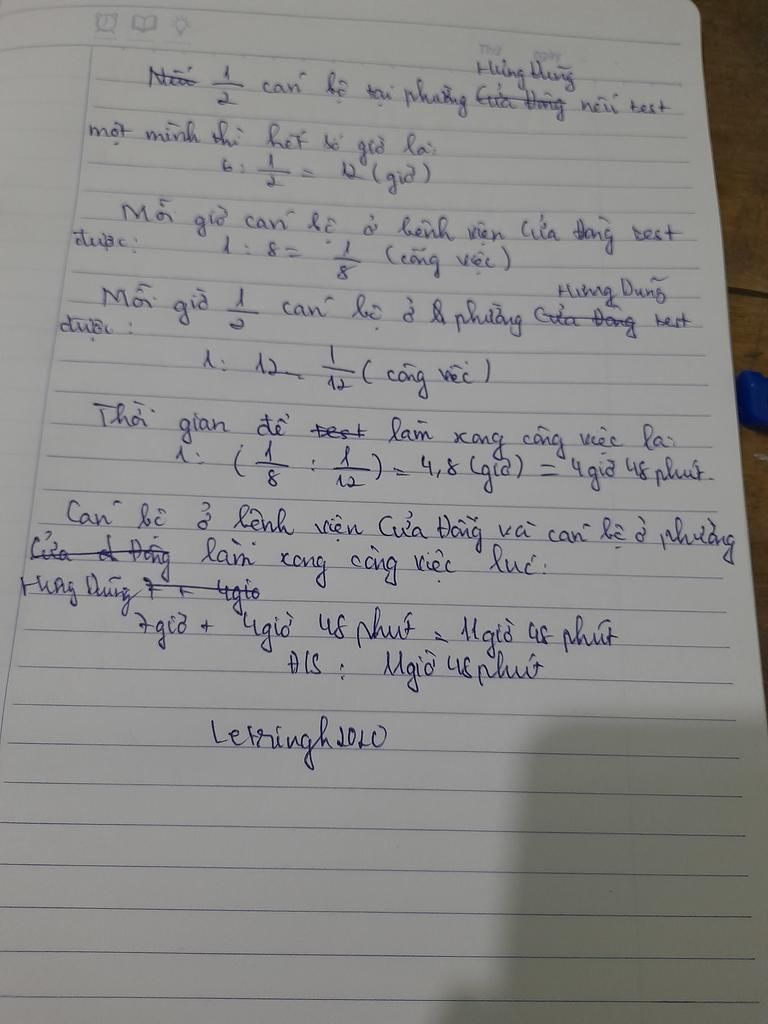 Thứ ngày
Hưng Dũng
Nếu 1/2 cán bộ tại phường Cửa Đông nếu test
một mình thì hết số giờ là:
6 : 1/2 = 12 (giờ)
Mỗi giờ cán bộ ở bệnh viện Cửa Đông test
được: 1 : 8 = 1/8 (công việc)
Hưng Dũng
Mỗi giờ 1/2 cán bộ ở phường Cửa Đông test
được :
1 : 12 = 1/12 (công việc)
Thời gian để test làm xong công việc là:
1 : (1/8 : 1/12) = 4,8 (giờ) = 4 giờ 48 phút.
Cán bộ ở bệnh viện Cửa Đông và cán bộ ở phường
Cửa Đông làm xong công việc lúc:
Hưng Dũng 7 + 4giờ
7 giờ + 4 giờ 48 phút = 11 giờ 48 phút
Đ/S : 11 giờ 48 phút
Letringh2020